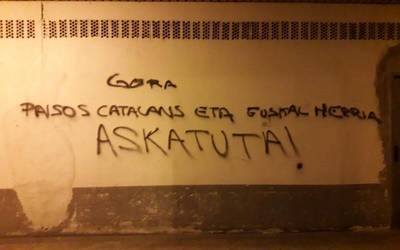 GORA
PAISOS CATALANS ETA EUSKAL HERRIA
ASKATUTA!